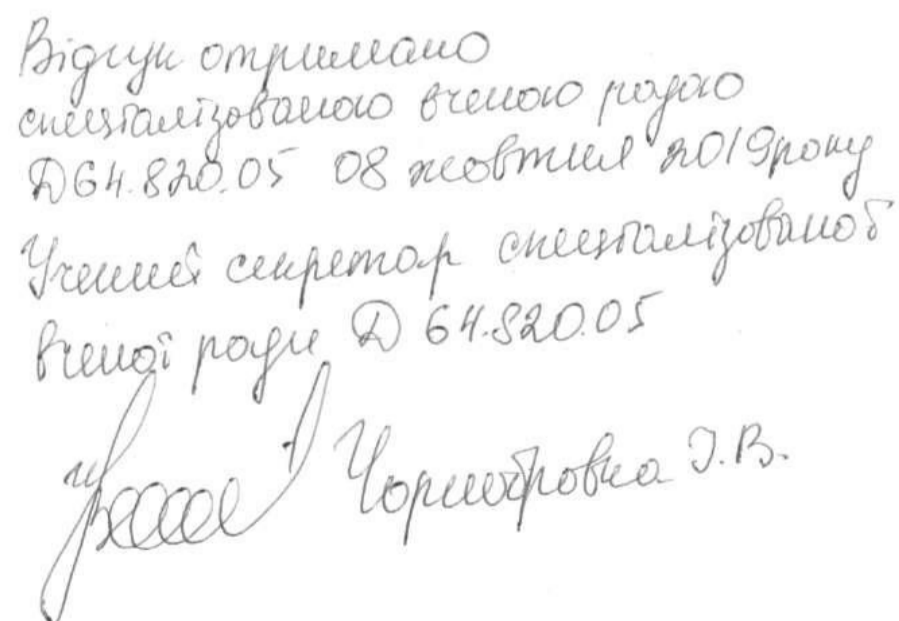 Відгук отримано
спеціалізованою вченою радою
Д64.820.05 08 жовтня 2019 року
Учений секретар спеціалізованої
вченої ради Д 64.820.05
І.В.